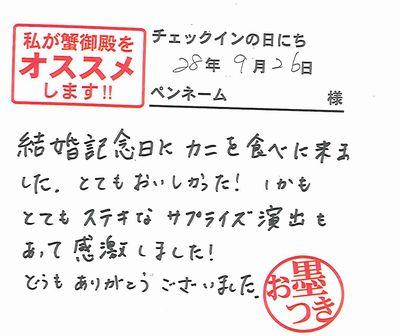 私が蟹御殿を
オススメ
します!!
チェックインの日にち
28年9月26日
ペンネーム 様
結婚記念日に カニを食べに来ま
した。とてもおいしかった! しかも
とても ステキな サプライズ演出も
あって 感激しました!
どうも ありがとうございました。
お墨つき